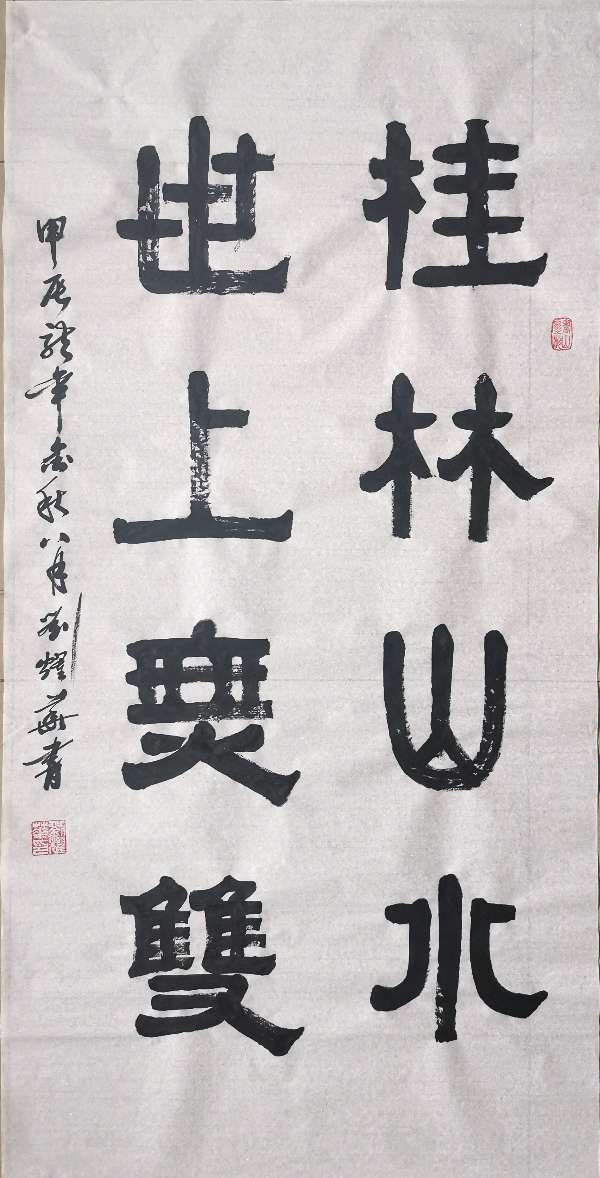 桂林山水
世上無雙
甲辰龍年金秋八月劉耀華書